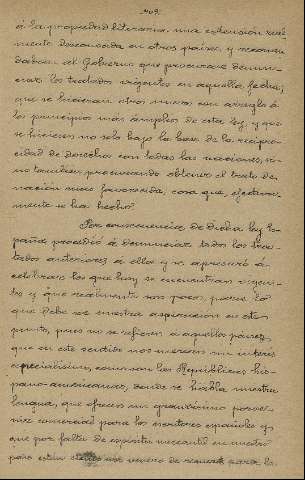 409
á la propiedad literaria, una extensión real-
mente desconocida en otros paises, y recomen-
daban al Gobierno que procurase denun-
ciar los tratados vigentes en aquella fecha,
que se hicieran otros nuevos con arreglo á
los principios más ámplios de esta ley, y que
se hiciesen no solo bajo la base de la recipro-
cidad de derechos con todas las naciones, si-
no tambien procurando obtener el trato de
nación más favorecida, cosa que, efectiva-
mente se ha hecho.
Por consecuencia de dicha ley Es-
paña procedió á denunciar todos los tra-
tados anteriores á ella y se apresuró á
celebrar los que hoy se encuentran vigen-
tes y que realmente son pocos, para lo
que debe ser nuestra aspiración en este
punto, pues no se refieren á aquellos paises
que en este sentido nos merecen un interés
especialísimo, como son las Repúblicas his-
pano-americanas, donde se habla nuestra
lengua, que ofrecen un grandísimo porve-
nir comercial para los escritores españoles y
que por falta de espíritu mercantil en nuestro
país están siendo un venero de riqueza para la